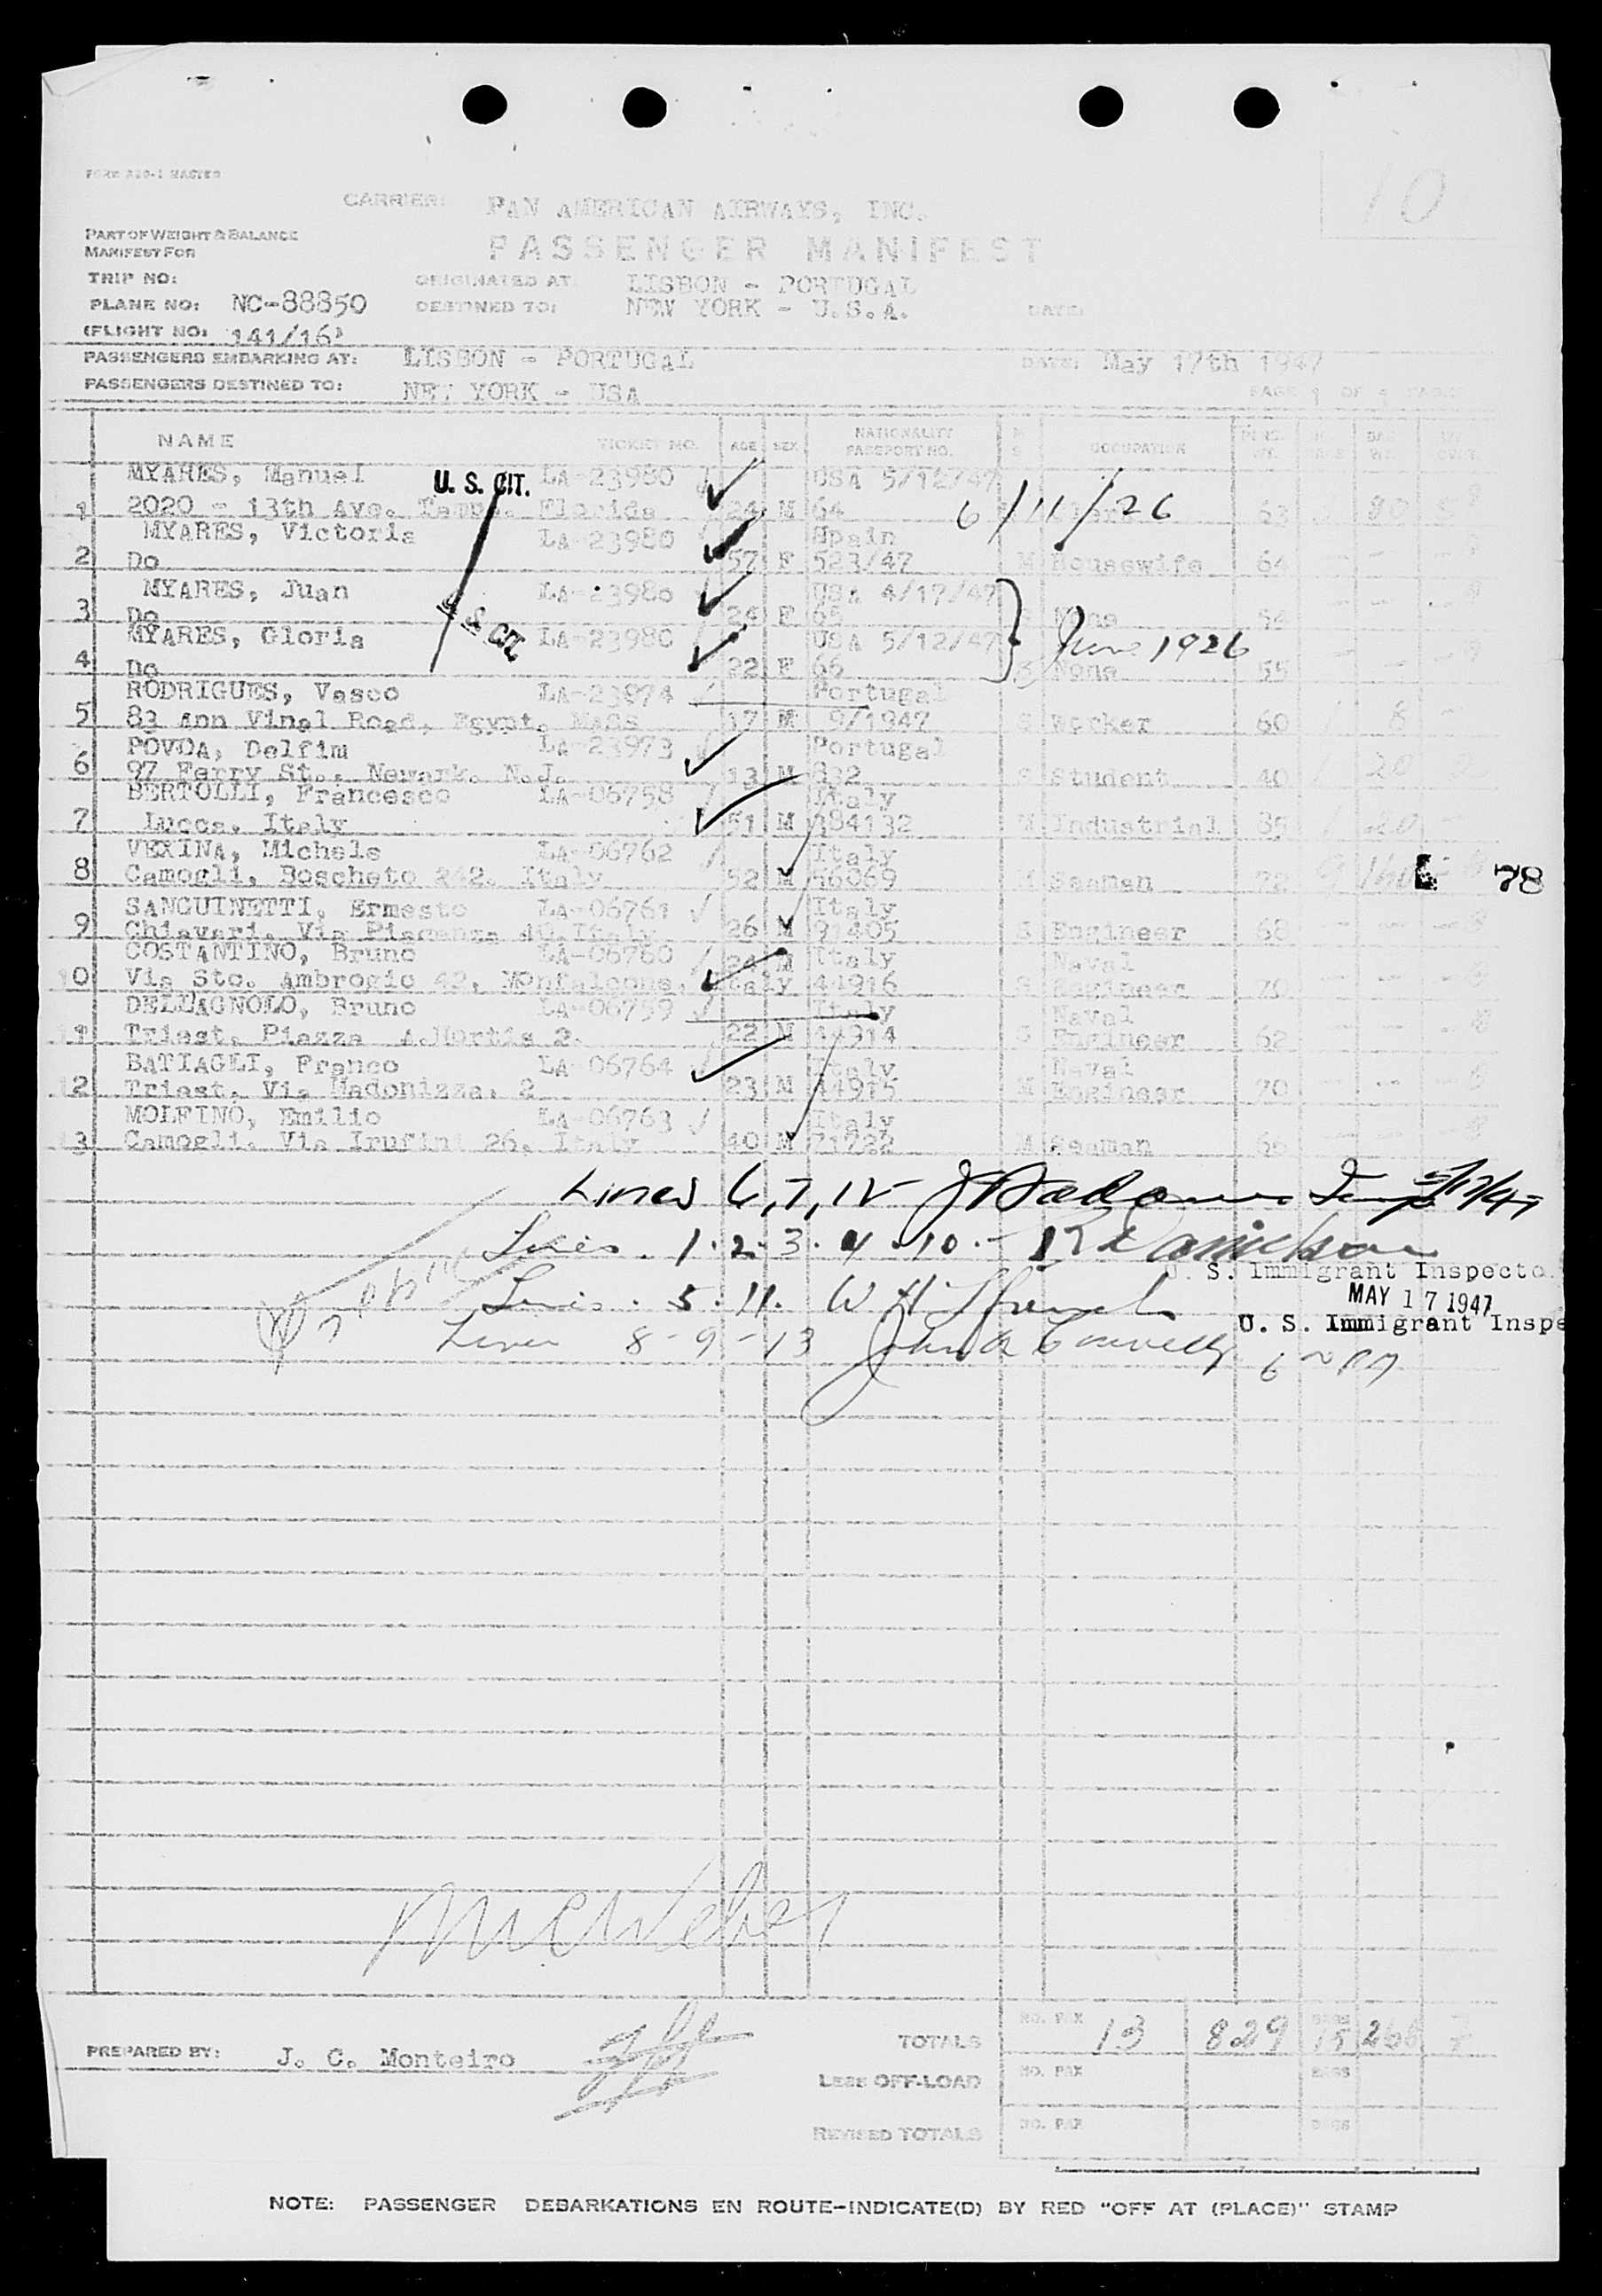 FORM 220-1 MASTER
10
CARRIER: PAN AMERICAN AIRWAYS, INC.
PART OF WEIGHT & BALANCE
MANIFEST FOR
PASSENGER MANIFEST
TRIP NO:
ORIGINATED AT: LISBON - PORTUGAL
PLANE NO: NC-88850 DESTINED TO: NEW YORK - U.S.A. DATE:
(FLIGHT NO: 141/16
PASSENGERS EMBARKING AT: LISBON - PORTUGAL DATE: May 17th 1947
PASSENGERS DESTINED TO: NEW YORK - USA PAGE 1 OF PAGE
NAME TICKET NO. AGE SEX NATIONALITY PASSPORT NO. OCCUPATION
MYARES, Manuel U. S. CIT. LA-23980 USA 5/12/47
1 2020 - 13th Ave. Tampa. Florida 24 M 64 6/11/26 63 80
MYARES, Victoria LA-23980 Spain
2 Do 57 F 523/47 M Housewife 64
MYARES, Juan LA-23980 USA 4/17/47
3 Do 24 F 65 None 54
MYARES, Gloria U. S. CIT. LA-23980 USA 5/12/47 June 1926
4 Do 22 F 66 S None 55
RODRIGUES, Vasco LA-23974 Portugal
5 83 Ann Vinal Road, Egypt, Mass 17 M 9/1947 S Worker 60 8
POVOA, Delfim LA-23973 Portugal
6 97 Ferry St., Newark. N.J. 13 M 832 S Student 40 20
BERTOLLI, Francesco LA-06758 Italy
7 Lucca, Italy 51 M 384132 M Industrial 85 20
VEXINA, Michele LA-06762 Italy
8 Camogli, Boscheto 242. Italy 52 M 56069 M Seaman 72 78
SANGUINETTI, Ermesto LA-06761 Italy
9 Chiavari, Via Piacenza 40.Italy 26 M 91405 S Engineer 68
COSTANTINO, Bruno LA-06760 24 M Italy Naval
10 Via Sto. Ambrogio 42, Monfalcone. Italy 44916 S Engineer 70
DELLAGNOLO, Bruno LA-06759 Italy Naval
11 Triest, Piazza A.Hortis 2. 22 M 44914 S Engineer 62
BATIAGLI, Franco LA-06764 Italy Naval
12 Triest, Via Madonizza, 2 23 M 44915 M Engineer 70
MOLFINO, Emilio LA-06763 Italy
13 Camogli. Via Irufini 26, Italy 40 M 71722 M Seaman 66
Lines 6,7,12 5/17/47
Lines 1.2.3.4.10. R Danielson
U. S. Immigrant Inspecto
Lines. 5.11. W H
MAY 17 1947
U. S. Immigrant Inspe
Lines 8-9-13 John
TOTALS NO. PAX 13 829 BAGS 15 266
PREPARED BY: J. C. Monteiro
LESS OFF-LOAD NO. PAX BAGS
REVISED TOTALS NO. PAX BAGS
NOTE: PASSENGER DEBARKATIONS EN ROUTE-INDICATE(D) BY RED "OFF AT (PLACE)" STAMP